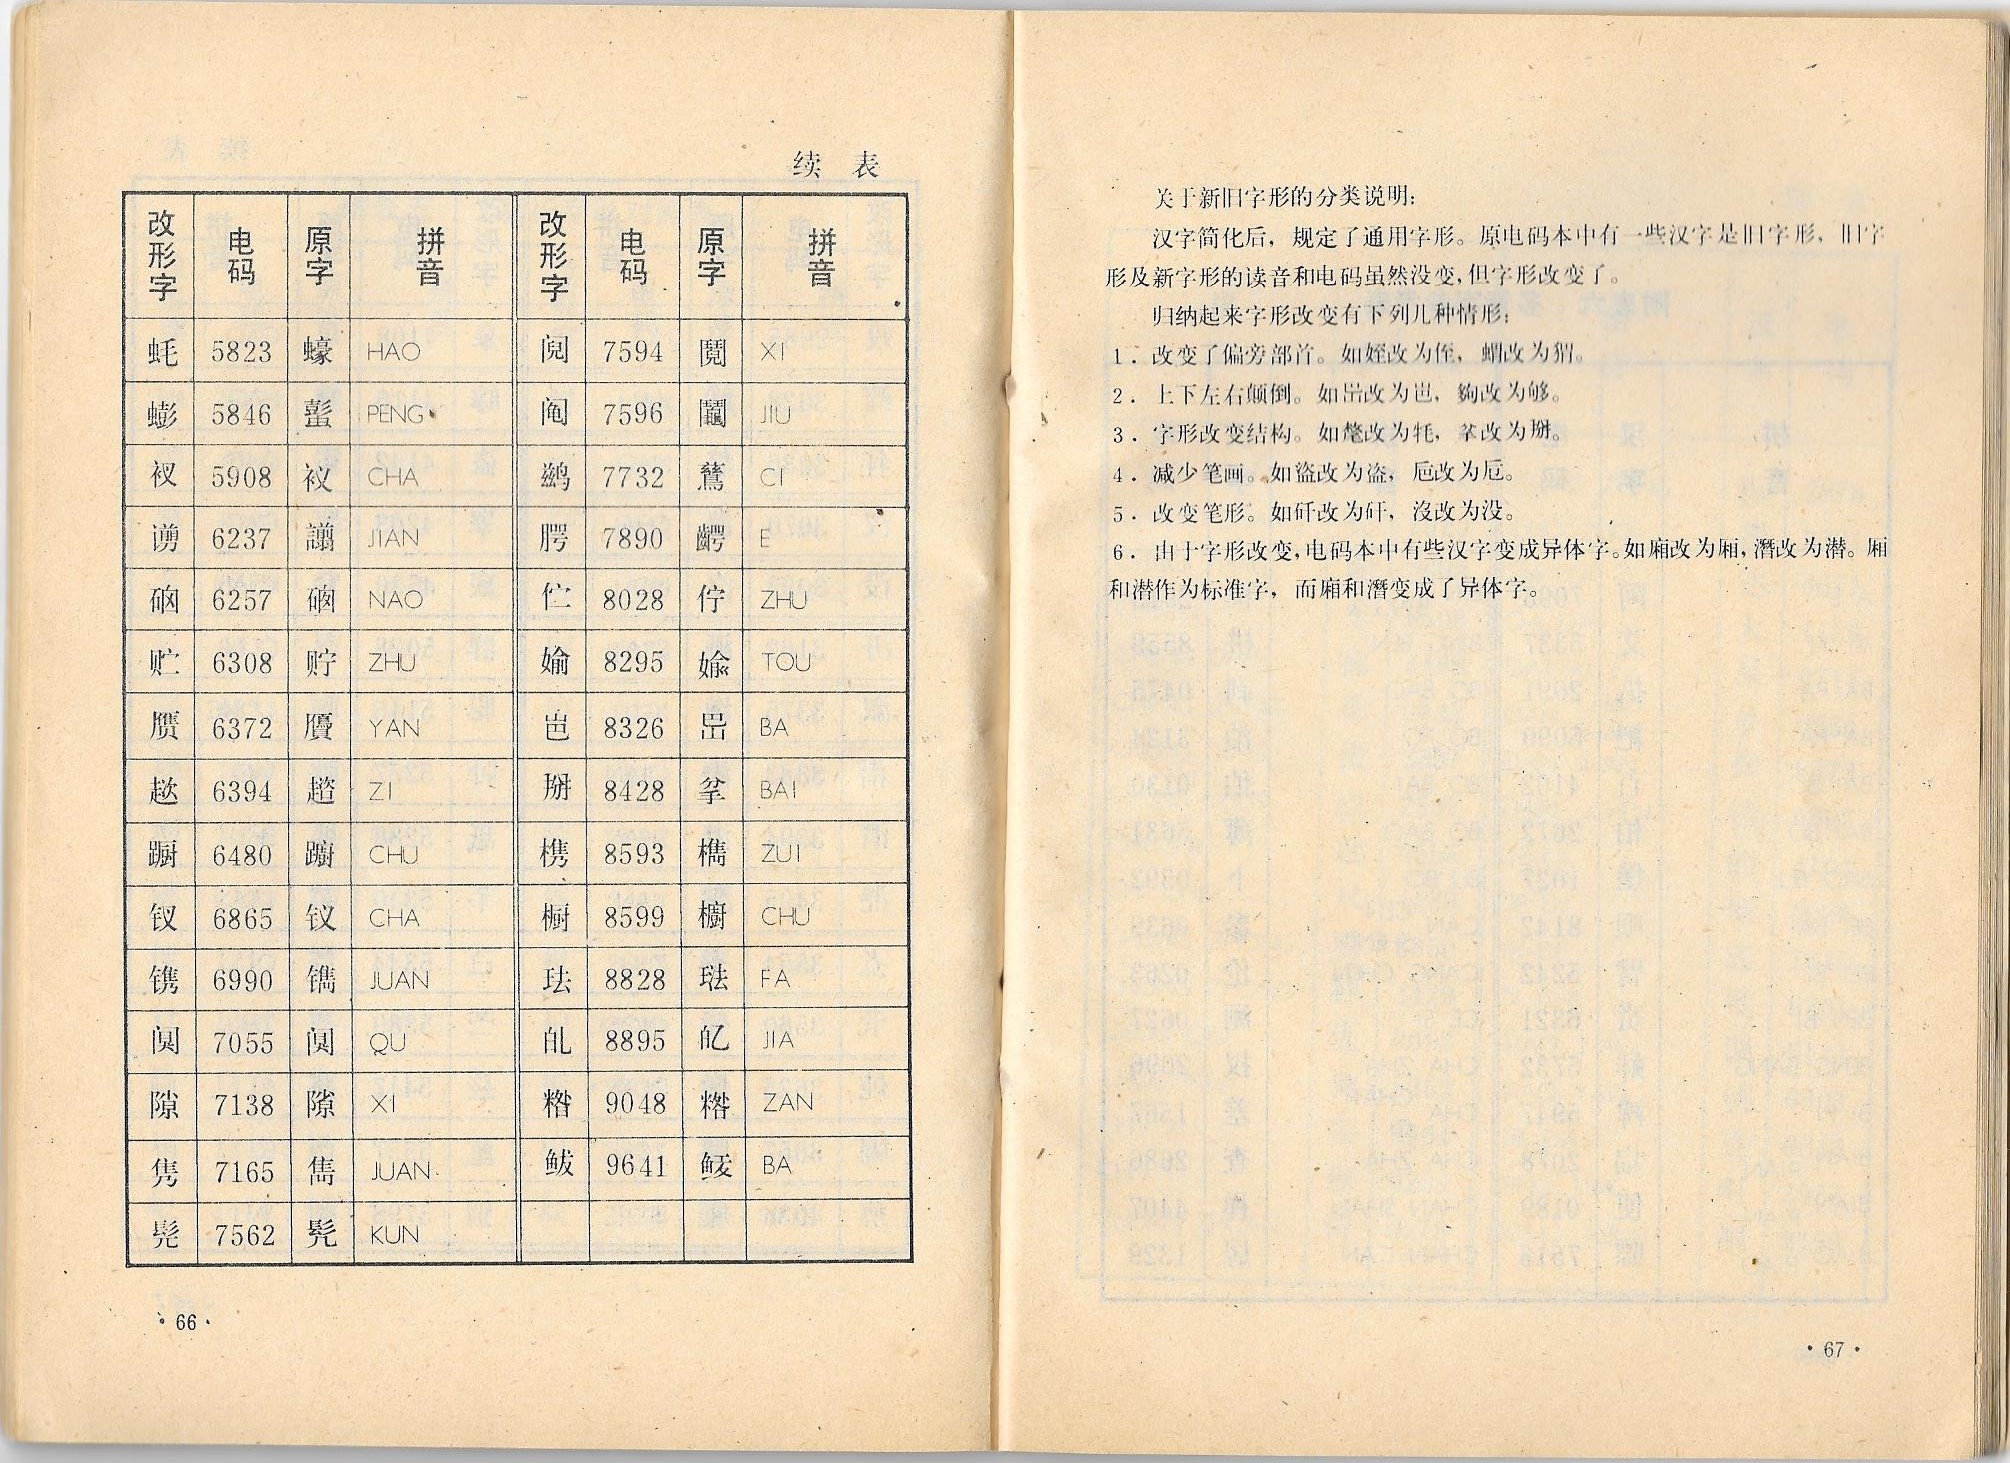 续 表
改形字 电码 原字 拼音 改形字 电码 原字 拼音
蚝 5823 蠔 HAO 阋 7594 鬩 XI
蟛 5846 蟚 PENG 阄 7596 鬮 JIU
衩 5908 衩 CHA 鹚 7732 鶿 CI
谫 6237 譾 JIAN 腭 7890 齶 E
硇 6257 NAO 伫 8028 佇 ZHU
贮 6308 貯 ZHU 媮 8295 媮 TOU
赝 6372 贗 YAN 岜 8326 岊 BA
趑 6394 趦 ZI 掰 8428 BAI
蹰 6480 躕 CHU 槜 8593 檇 ZUI
钗 6865 釵 CHA 橱 8599 櫥 CHU
镌 6990 鐫 JUAN 珐 8828 琺 FA
阒 7055 闃 QU 8895 JIA
隙 7138 隙 XI 糌 9048 糌 ZAN
隽 7165 雋 JUAN 鲅 9641 鮁 BA
髡 7562 髠 KUN
·66·
关于新旧字形的分类说明:
汉字简化后，规定了通用字形。原电码本中有一些汉字是旧字形，旧字
形及新字形的读音和电码虽然没变,但字形改变了。
归纳起来字形改变有下列几种情形:
1．改变了偏旁部首。如姪改为侄，蝟改为猬。
2．上下左右颠倒。如岊改为岜，夠改为够。
3．字形改变结构。如氂改为牦，改为掰。
4．减少笔画。如盜改为盗，巵改为卮。
5．改变笔形。如矸改为矸，沒改为没。
6．由于字形改变,电码本中有些汉字变成异体字。如廂改为厢,潛改为潜。厢
和潜作为标准字，而廂和潛变成了异体字。
·67·